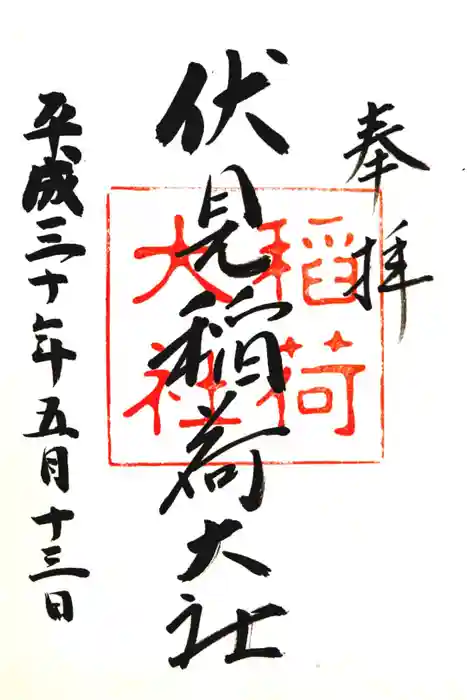 奉拝
伏見稲荷大社
稲荷
大社
平成三十年五月十三日